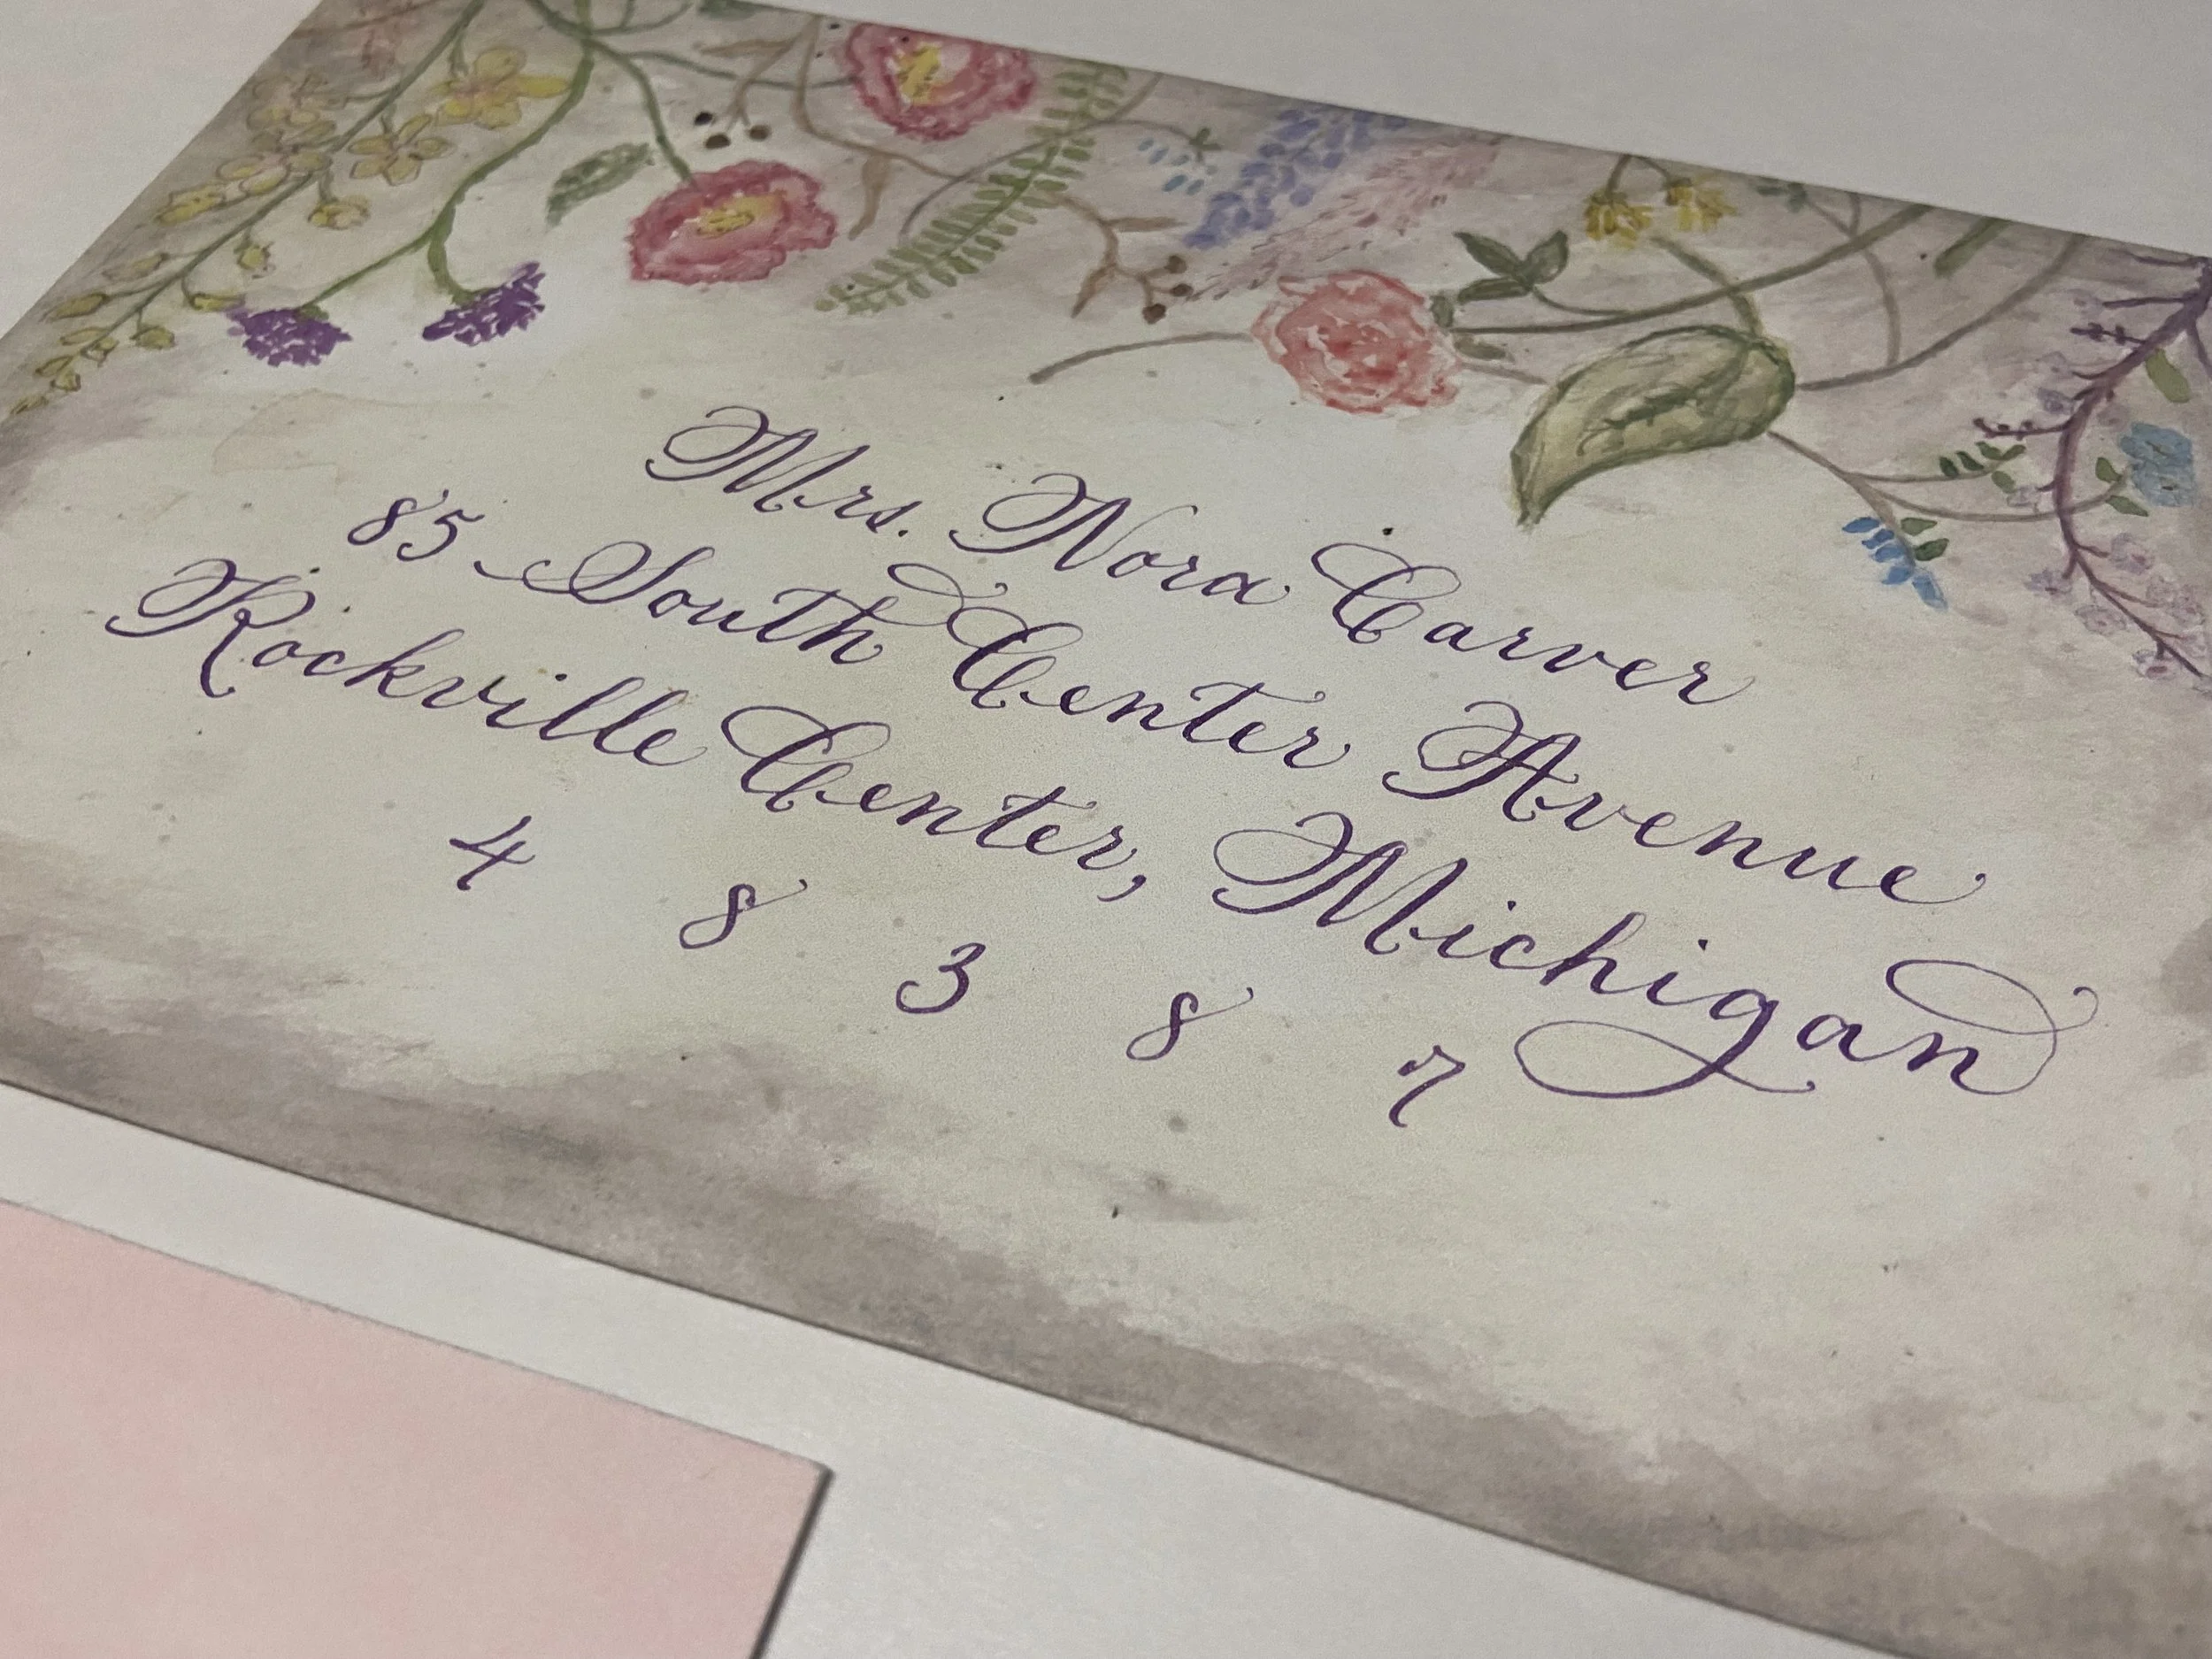 Mrs. Nora Carver
85 South Center Avenue
Rockville Center, Michigan
4 8 3 8 7